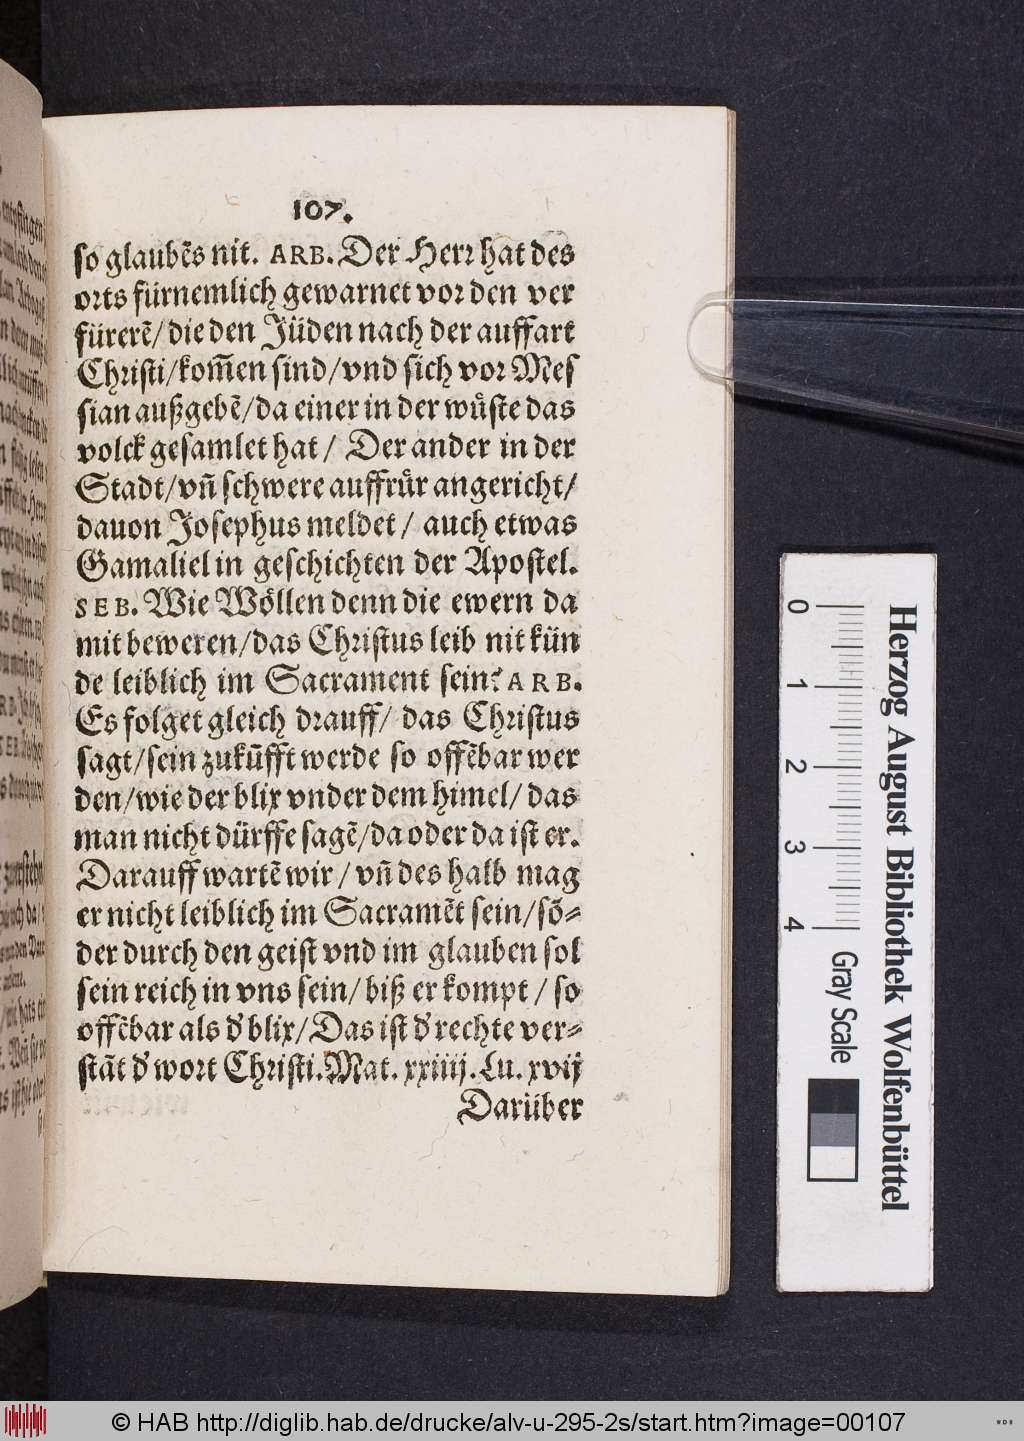 107.
so glaubēs nit. ARB. Der Herr hat des
orts fürnemlich gewarnet vor den ver
fürerē/ die den Jüden nach der auffart
Christi/kom̄en sind/vnd sich vor Mes
sian außgebē/da einer in der wuͤste das
volck gesamlet hat/ Der ander in der
Stadt/vn̄ schwere auffruͤr angericht/
dauon Josephus meldet/ auch etwas
Gamaliel in geschichten der Apostel.
SEB. Wie Woͤllen denn die ewern da
mit beweren/das Christus leib nit kün
de leiblich im Sacrament sein? ARB.
Es folget gleich drauff/ das Christus
sagt/sein zukūfft werde so offēbar wer
den/wie der blix vnder dem himel/ das
man nicht dürffe sagē/da oder da ist er.
Darauff wartē wir/ vn̄ des halb mag
er nicht leiblich im Sacramēt sein/sō-
der durch den geist vnd im glauben sol
sein reich in vns sein/ biß er kompt/ so
offēbar als d' blix/Das ist d' rechte ver-
stāt d' wort Christi. Mat. xxiiij. Lu. xvij
Darüber
Herzog August Bibliothek Wolfenbüttel
0 1 2 3 4 Gray Scale
© HAB http://diglib.hab.de/drucke/alv-u-295-2s/start.htm?image=00107